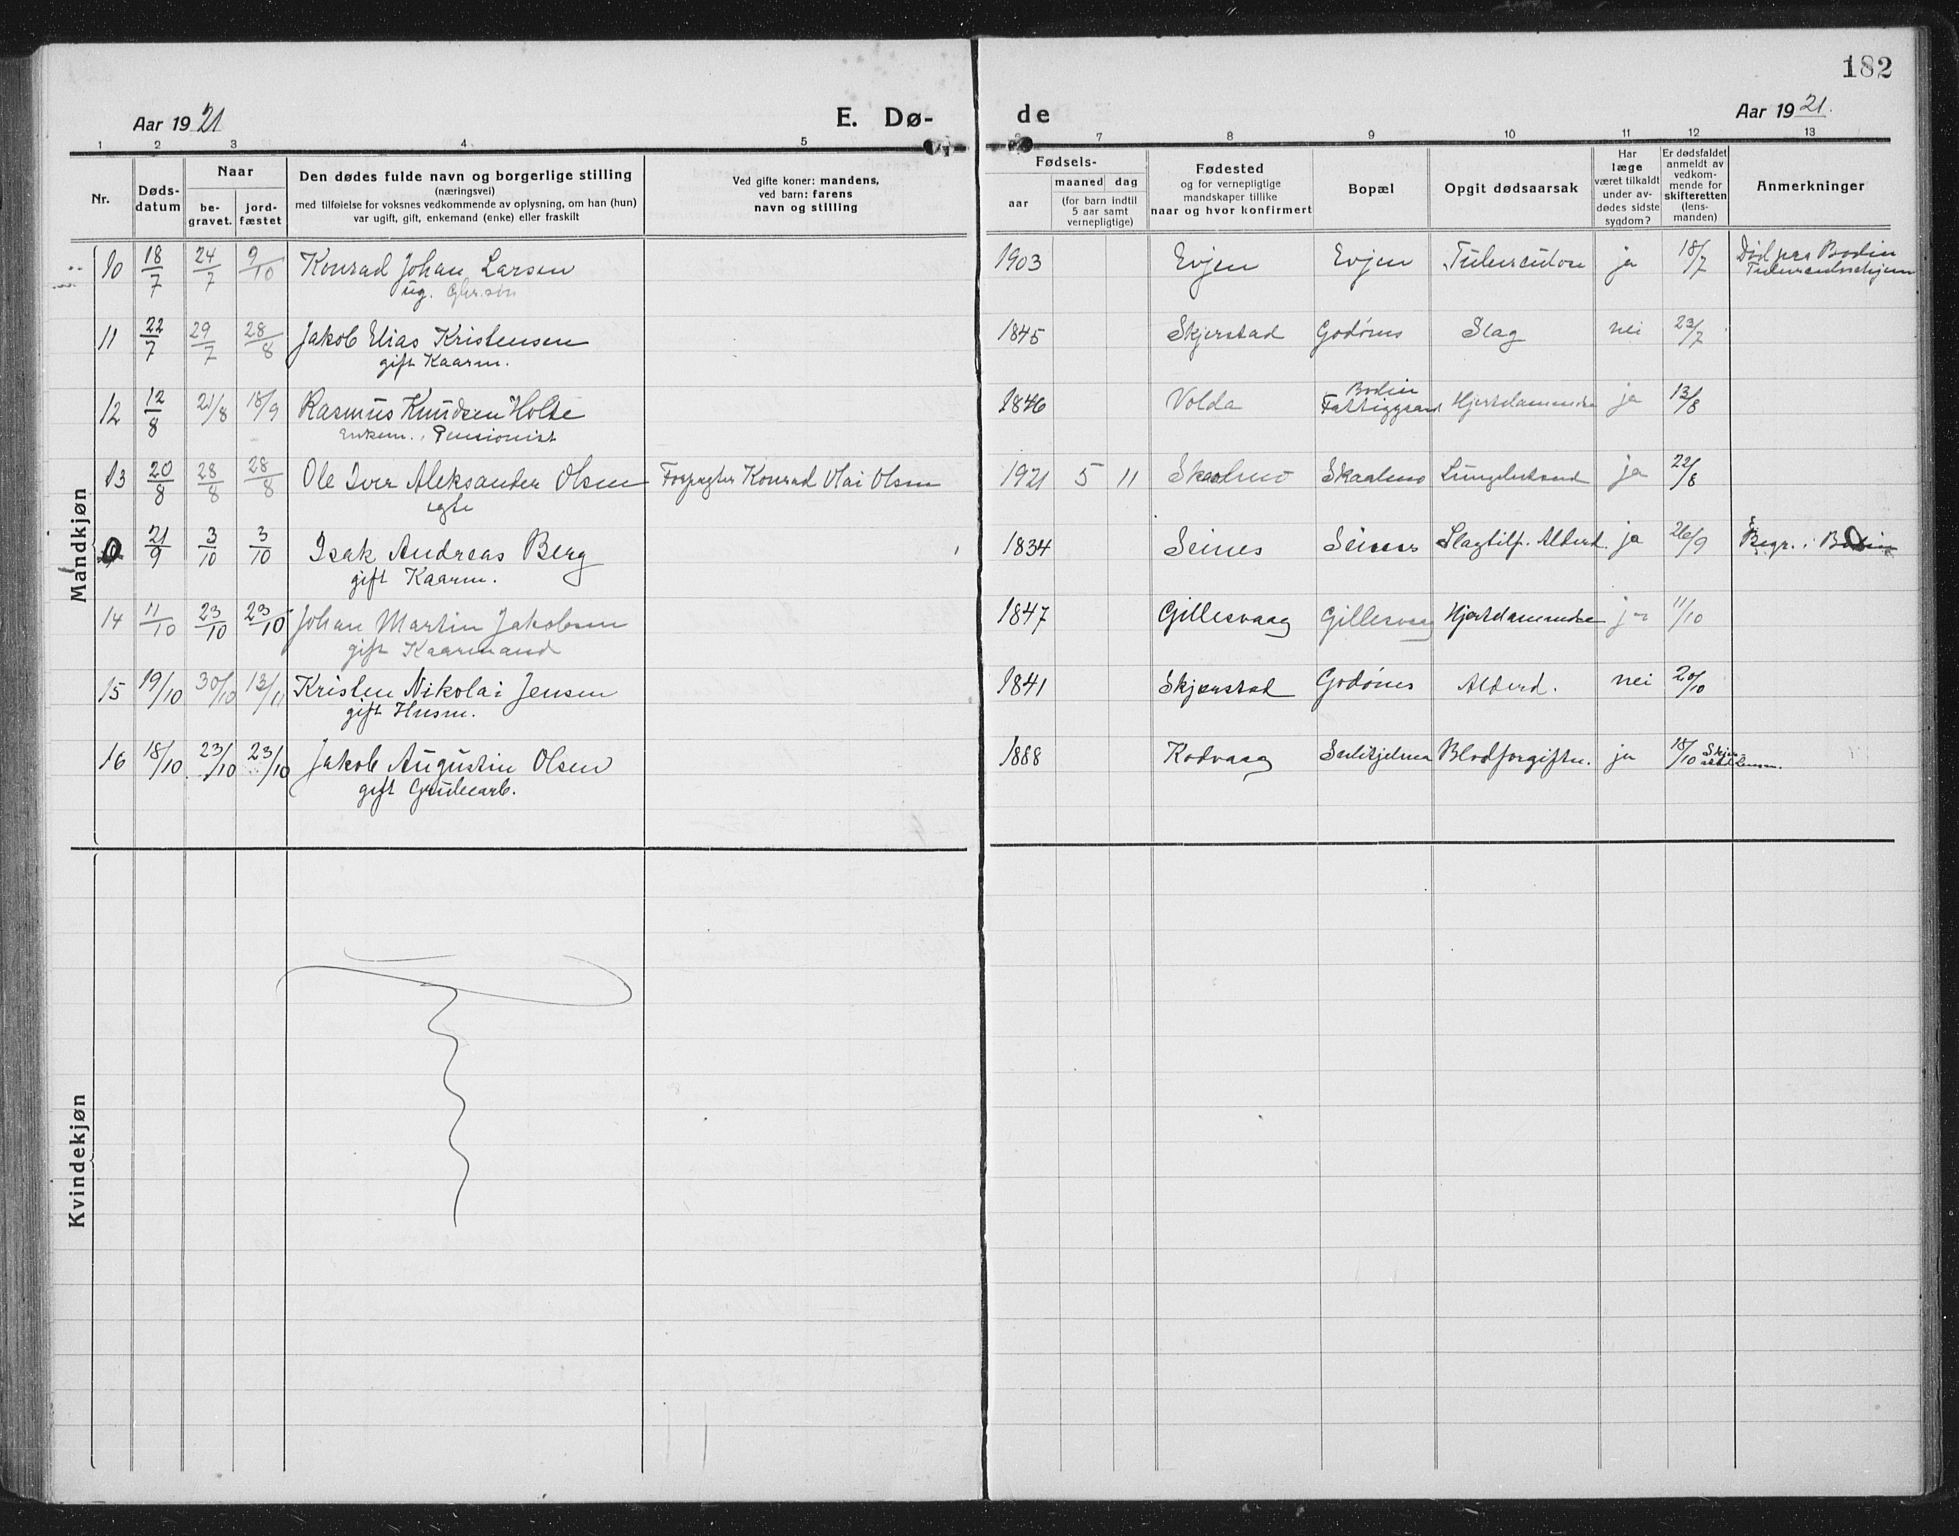 182
Aar 1921 E. Dø- de Aar 1921.
1 2 3 4 5 7 8 9 10 11 12 13
Nr.
Døds-
datum
Naar
be-
gravet.
jord-
fæstet
Den dødes fulde navn og borgerlige stilling
(næringsvei)
med tilføielse for voksnes vedkommende av oplysning, om han (hun)
var ugift, gift, enkemand (enke) eller fraskilt
Ved gifte koner: mandens,
ved barn: farens
navn og stilling
Fødsels-
aar
maaned dag
(for barn indtil
5 aar samt
vernepligtige)
Fødested
og for vernepligtige
mandskaper tillike
naar og hvor konfirmert
Bopæl
Opgit dødsaarsak
Har
læge
været tilkaldt
under av-
dødes sidste
sygdom?
Er dødsfaldet
anmeldt av
vedkom-
mende for
skifteretten
(lens-
manden)
Anmerkninger
Mandkjøn
10 18/7 24/7 9/10 Konrad Johan Larsen 1903 Evjen Evjen Tuberculose ja 18/7 Død paa Bodin
ug. Tuberculosehjem
11 22/7 29/7 28/8 Jakob Elias Kristensen 1845 Skjerstad Godønes Slag nei 23/7
gift Kaarm.
12 12/8 21/8 18/9 Rasmus Knudsen Holte 1846 Volda Bodin Fattiggaard Hjertelammelse ja 13/8
Enkem., Pensionist
13 20/8 28/8 28/8 Ole Iver Aleksander Olsen Forpagter Konrad Olai Olsen 1921 5 11 Skaalmo Skaalmo Lungebetænd ja 22/8
egte
21/9 3/10 3/10 Isak Andreas Berg 1834 Seines Seines Slagtilf. Alderd. ja 26/9 Begr. i Bodin
gift Kaarm.
14 11/10 23/10 23/10 Johan Martin Jakobsen 1847 Gillesvaag Gillesvaag Hjertelammelse ja 11/10
gift Kaarmand
15 19/10 30/10 13/11 Kristen Nikolai Jensen 1841 Skjerstad Godønes Alderd. nei 20/10
gift Husm.
16 18/10 23/10 23/10 Jakob Augustin Olsen 1888 Kodvaag Sulitjelma Blodforgiftn. ja 18/10
gift Grubearb.
Kvindekjøn